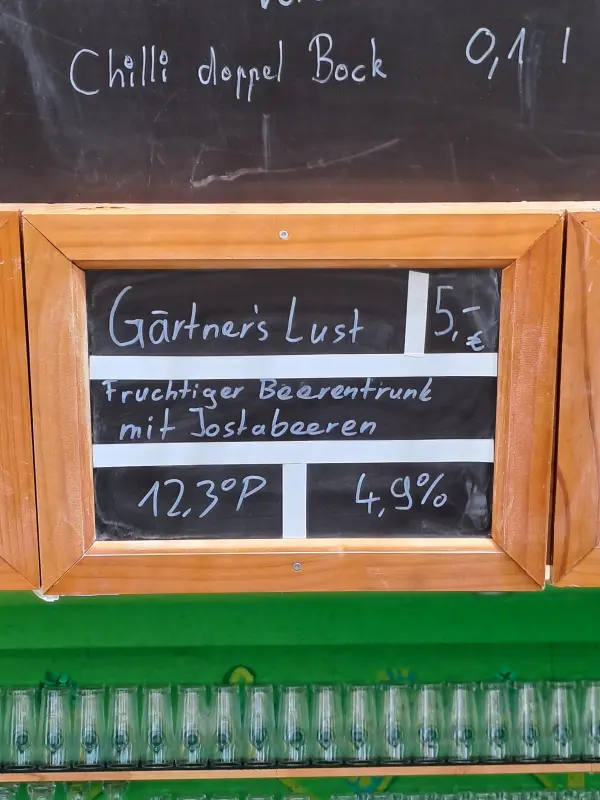 Chilli doppel Bock 0,1 l
Gärtner's Lust 5,- €
Fruchtiger Beerentrunk
mit Jostabeeren
12,3°P 4,9%